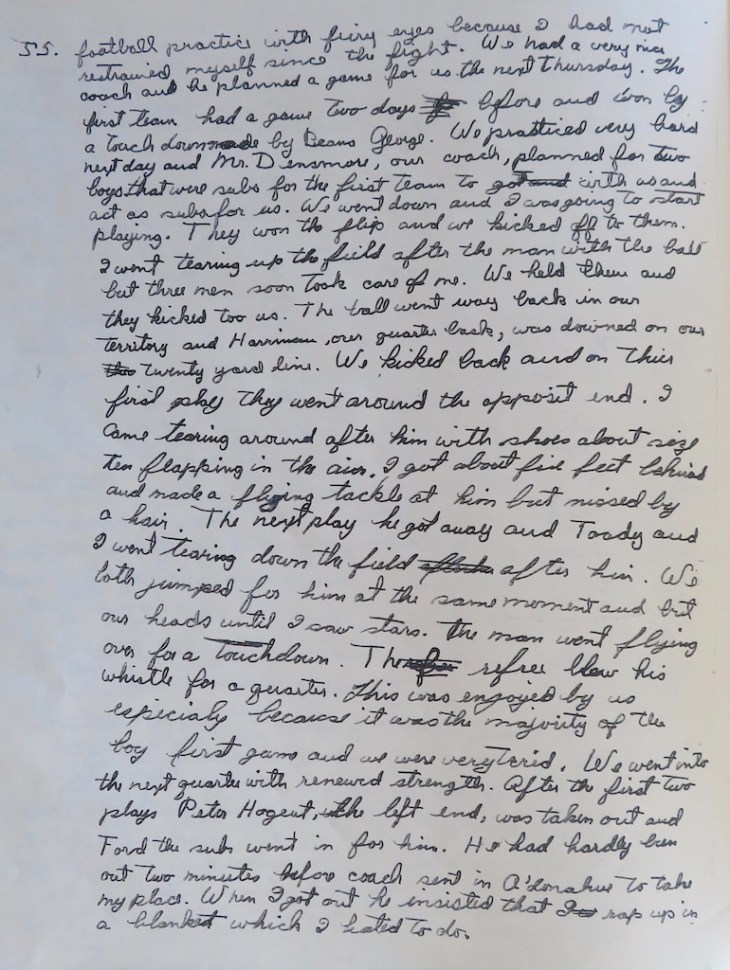 55. football practice with firey eyes because I had not
restrained myself since the fight. We had a very nice
coach and he planned a game for us the next Thursday. The
first team had a game two days before and won by
a touch down made by Beans George. We practiced very hard
next day and Mr. Densmore, our coach, planned for two
boys that were subs for the first team to with us and
act as subs for us. We went down and I was going to start
playing. They won the flip and we kicked off to them.
I went tearing up the field after the man with the ball
but three men soon took care of me. We held them and
they kicked too us. The ball went way back in our
territory and Harriman, our quarter back, was downed on our
twenty yard line. We kicked back and on thier
first play they went around the opposit end. I
came tearing around after him with shoes about size
ten flapping in the air. I got about five feet behind
and made a flying tackle at him but missed by
a hair. The next play he got away and Toady and
I went tearing down the field after him. We
both jumped for him at the same moment and hit
our heads until I saw stars. The man went flying
over for a touchdown. The refree blew his
whistle for a quarter. This was enjoyed by us
especialy because it was the majority of the
boy first game and we were very tierd. We went into
the next quarter with renewed strength. After the first two
plays Peter Hogent, the left end, was taken out and
Ford the sub went in for him. He had hardly been
out two minutes before coach sent in O'Donahue to take
my place. When I got out he insisted that I rap up in
a blanket which I hated to do.